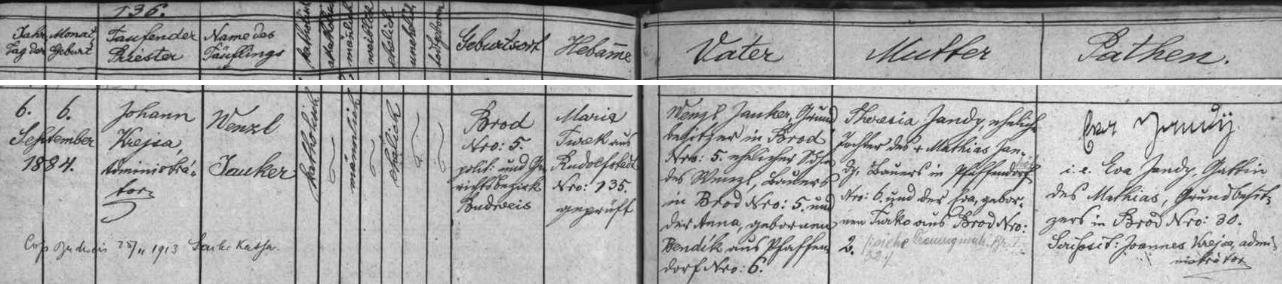 136.
Jahr, Monat,
Tag der Geburt
Taufender
Priester
Name des
Täuflings
katholisch
männlich
weiblich
ehelich
unehelich
Geburtsort
Hebam̄e
Vater
Mutter
Pathen.
6. 6.
September
1884.
Johann
Krejca,
Administra-
tor
Wenzl
Jauker
katholisch
männlich
ehelich
Brod
Nro: 5.
polit. und Ge-
richtsbezirk
Budweis
Maria
Turk aus
Rudolfstadt
Nro: 135.
geprüft
Wenzl Jauker, Grund-
besitzer in Brod
Nro: 5. ehlicher Sohn
des Wenzl, Bauers
in Brod Nro: 5, und
der Anna, gebornen
Bendik aus Pfaffen-
dorf Nro: 6.
Theresia Jandy, eheliche
Tochter des + Mathias Jan-
dy, Bauers in Pfaffendorf
Nro: 6. und der Eva, gebor-
nen Turko aus Brod Nro:
2.
Eva Jandy
i. e. Eva Jandy, Gattin
des Mathias, Grundbesit-
zers in Brod Nro: 30.
Scripsit: Joannes Krejca, admi-
nistrator
Cop. Budweis 25/11 1913